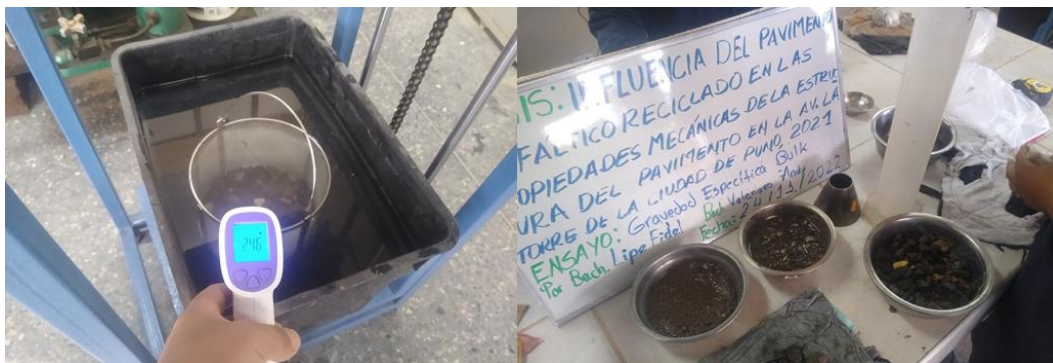 IS: INFLUENCIA DEL PAVIMENTO
FALTICO RECICLADO EN LAS
OPIEDADES MECÁNICAS DE LA ESTRUC
URA DEL PAVIMENTO EN LA AV. LA
TORRE DE LA CIUDAD DE PUNO, 2021
ENSAYO: Gravedad Específica Bulk
Por Bach. Lipa Fidel Bach. Valeriano Andy
Fecha: 24/11/2022